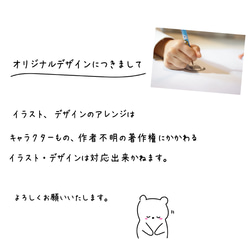 オリジナルデザインにつきまして
イラスト、デザインのアレンジは
キャラクターもの、作者不明の著作権にかかわる
イラスト・デザインは対応出来かねます。
よろしくお願いいたします。